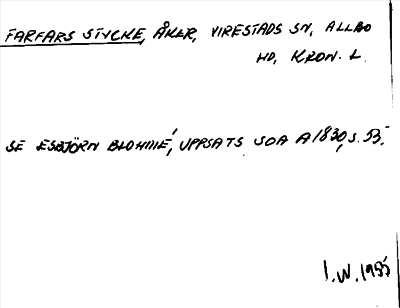 FARFARS STYCKE, ÅKER, VIRESTADS SN, ALLBO
HD, KRON. L.
SE ESBJÖRN BLOHMÉ, UPPSATS SOA A 1830, S. 53.
I.W. 1985